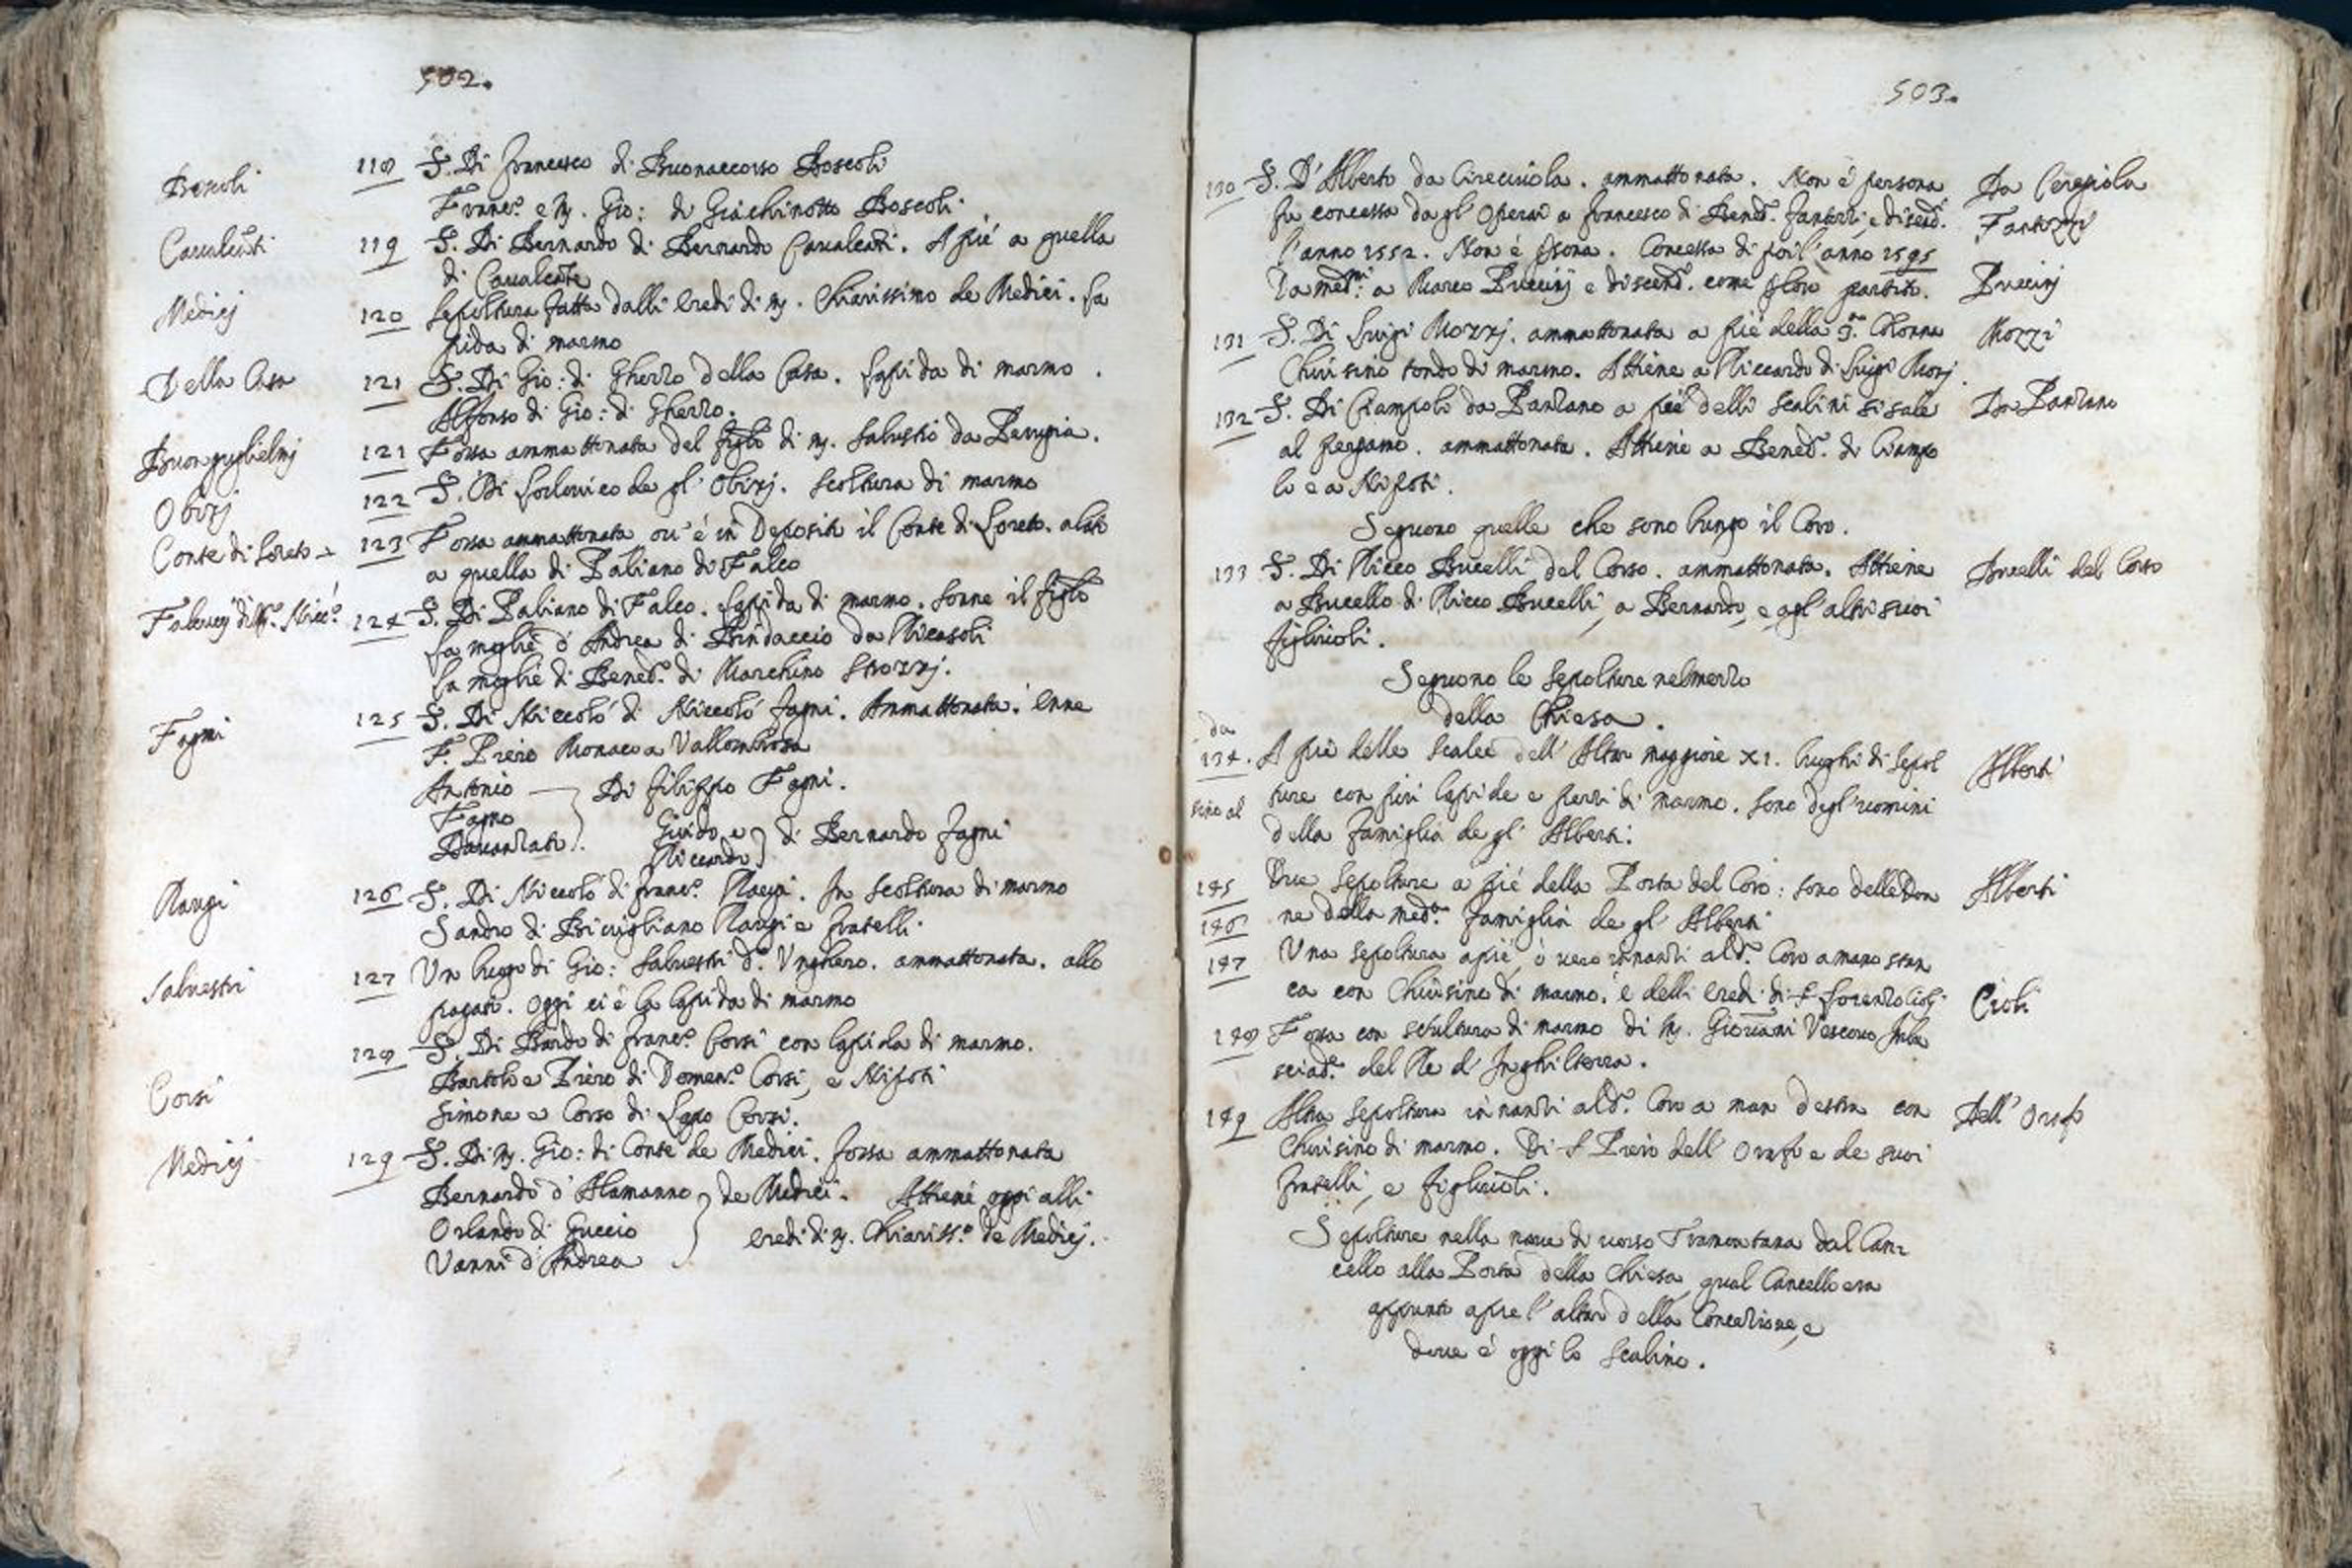 502.
Boscoli 118 S. Di Francesco di Buonaccorso Boscoli
Franc.º e M. Gio: di Giachinotto Boscoli.
Caualcāti 119 S. Di Bernardo di Bernardo Caualcāti. A pié a quella
di Caualcāte
Medicj 120 Sepoltura fatta dalli Eredi di M. Chiarissimo de Medici. La
pida di marmo
Della Casa 121 S. Di Gio: di Gherro della Casa. Lapida di marmo.
Alfonso di Gio: di Gherro.
Buonguglielmj 121 Fossa ammattonata del figlo di M. Salustio da Perugia.
Obizj 122 S. Di Lodouico de gl' Obizj. Scoltura di marmo
Conte di Loreto 123 Fossa ammattonata ou' é in Deposito il Conte di Loreto. alato
a quella di Paliano di Falco
124 S. Di Paliano di Falco. Lapida di marmo. Sonne il figlo
La moglie d' Andrea di Bindaccio da Ricasoli
La moglie di Bened.º di Marchino Strozzj.
Fagni 125 S. Di Niccoló di Niccoló Fagni. Ammattonata. Enne
F. Piero Monaco a Vallombrosa
Antonio Di Filippo Fagni.
Fagno
Dauanzati Guido e di Bernardo Fagni
Riccardo
Raugi 126 S. Di Niccoló di Franc.º Raugi. In Scoltura di marmo
Sandro di Biuigliano Raugi e fratelli.
Saluestri 127 Un luogo di Gio: Saluestri d.º Unghero. ammattonata. allo
pagati. Oggi ci é la lapida di marmo
128 S. Di Bardo di Franc.º Corsi con lapida di marmo.
Corsi Bartolo e Piero di Domen.º Corsi, e Nipoti
Simone e Corso di Lapo Corsi.
Medicj 129 S. Di M. Gio: di Conte de Medici. Fossa ammattonata
Bernardo d' Alamanno de Medici. Attiene oggi alli
Orlando di Guccio Eredi di M. Chiariss.º de Medicj.
Vanni d' Andrea
503.
130 S. D' Alberto da Cireciuola. ammattonata. Non é persona Da Cereciola
fu concessa da gl' Operai a Francesco di Bened.º Fantozzi, e discend. Fantozzi
l'anno 1552. Non é psona. Concessa di poi l'anno 1595
La med.ma a Marco Puccinj e discend. come p loro partito. Puccinj
131 S. Di Luigi Mozzj. ammattonata a pié della 3.ª Colonna Mozzi
Chiusino tondo di marmo. Attiene a Riccardo di Luigi Mozj.
132 S. Di Ciampolo da Panzano a pié delli scalini si sale Da Panzano
al pergamo. ammattonata. Attiene a Bened.º di Ciampo
lo e a Nipoti.
Seguono quelle che sono lungo il Coro.
133 S. Di Ricco Bucelli del Corso. ammattonata. Attiene Bucelli del Corso
a Bucello di Ricco Bucelli, a Bernardo, e agl' altri suoi
figliuoli.
Seguono le Sepolture nel mezzo
della Chiesa.
da
134. A pié delle scalee dell' Altar maggiore XI. luoghi di Sepol Alberti
sino al ture con piú lapide e pezzi di marmo. Sono degl' uomini
della Famiglia de gl' Alberti.
145 Due Sepolture a pié della Porta del Coro: sono delle Don Alberti
146 ne della med.ª Famiglia de gl' Alberti
147 Una sepoltura apié, o uero innanzi al d.º Coro a mano stan
ca con Chiusino di marmo. é delli Eredi di S. Lorenzo Cioli Cioli
148 Fossa con scultura di marmo di M. Giouani Vescouo Imba
sciad.e del Re d' Inghilterra.
149 Altra Sepoltura innanzi al d.º Coro a man destra con Dell' Orafo
Chiusino di marmo. Di S Piero dell' Orafo e de suoi
fratelli, e figliuoli.
Sepolture nella naue di uerso Tramontana dal Can:
cello alla Porta della Chiesa, qual Cancello era
appunto apie l' altar della Concezione, e
doue é oggi lo scalino.